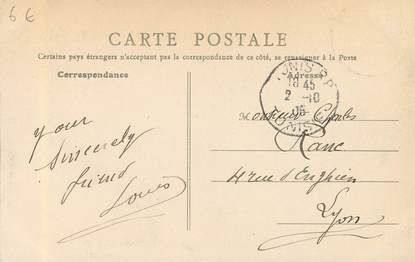 6 €
CARTE POSTALE
Certains pays étrangers n'acceptant pas la correspondance de ce côté, se renseigner à la Poste
Correspondance
Adresse
TUNIS R.P.
18 45
2 -10
06
TUNISIE
your
sincerely
friend
Louis
Monsieur Charles
Ranc
4 rue d'Enghien
Lyon